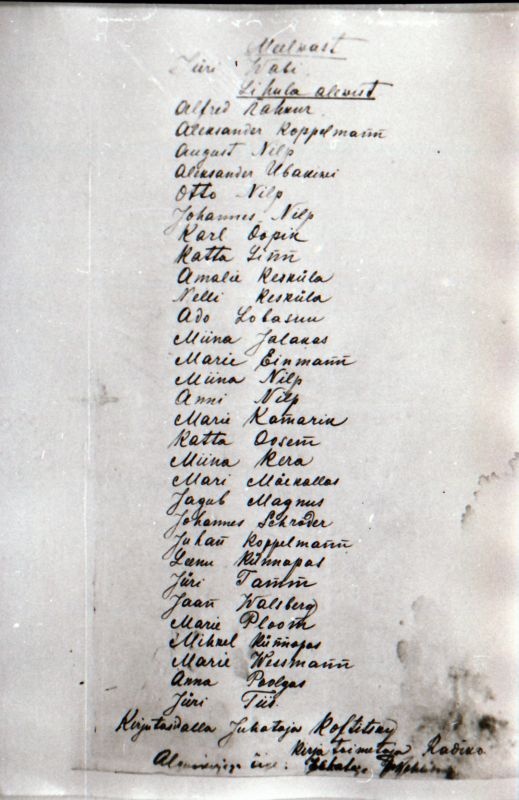 Meelwast
Jüri Wabi.
Lihula alewist
Alfred Rahnur.
Aleksander Koppelmann
August Nilp
Aleksander Ubakiwi
Otto Nilp
Johannes Nilp
Karl Öopik
Katta Linn
Amalie Kesküla
Nelli Kesküla
Ado Lobasuu
Miina Jalakas
Marie Einmann
Miina Nilp
Anni Nilp
Marie Kamarik
Katta Oosem
Miina Kera
Mari Mäekallas
Jagub Magnus
Johannes Schröder
Juhan Koppelmann
Leenu Künnapas
Jüri Tamm
Jaan Walsberg
Marie Ploom
Mihkel Künnapas
Marie Wessmann
Anna Poolgas
Jüri Tiis.
Kirjutasdalla Juhataja
Kirja toimetaja Radiko